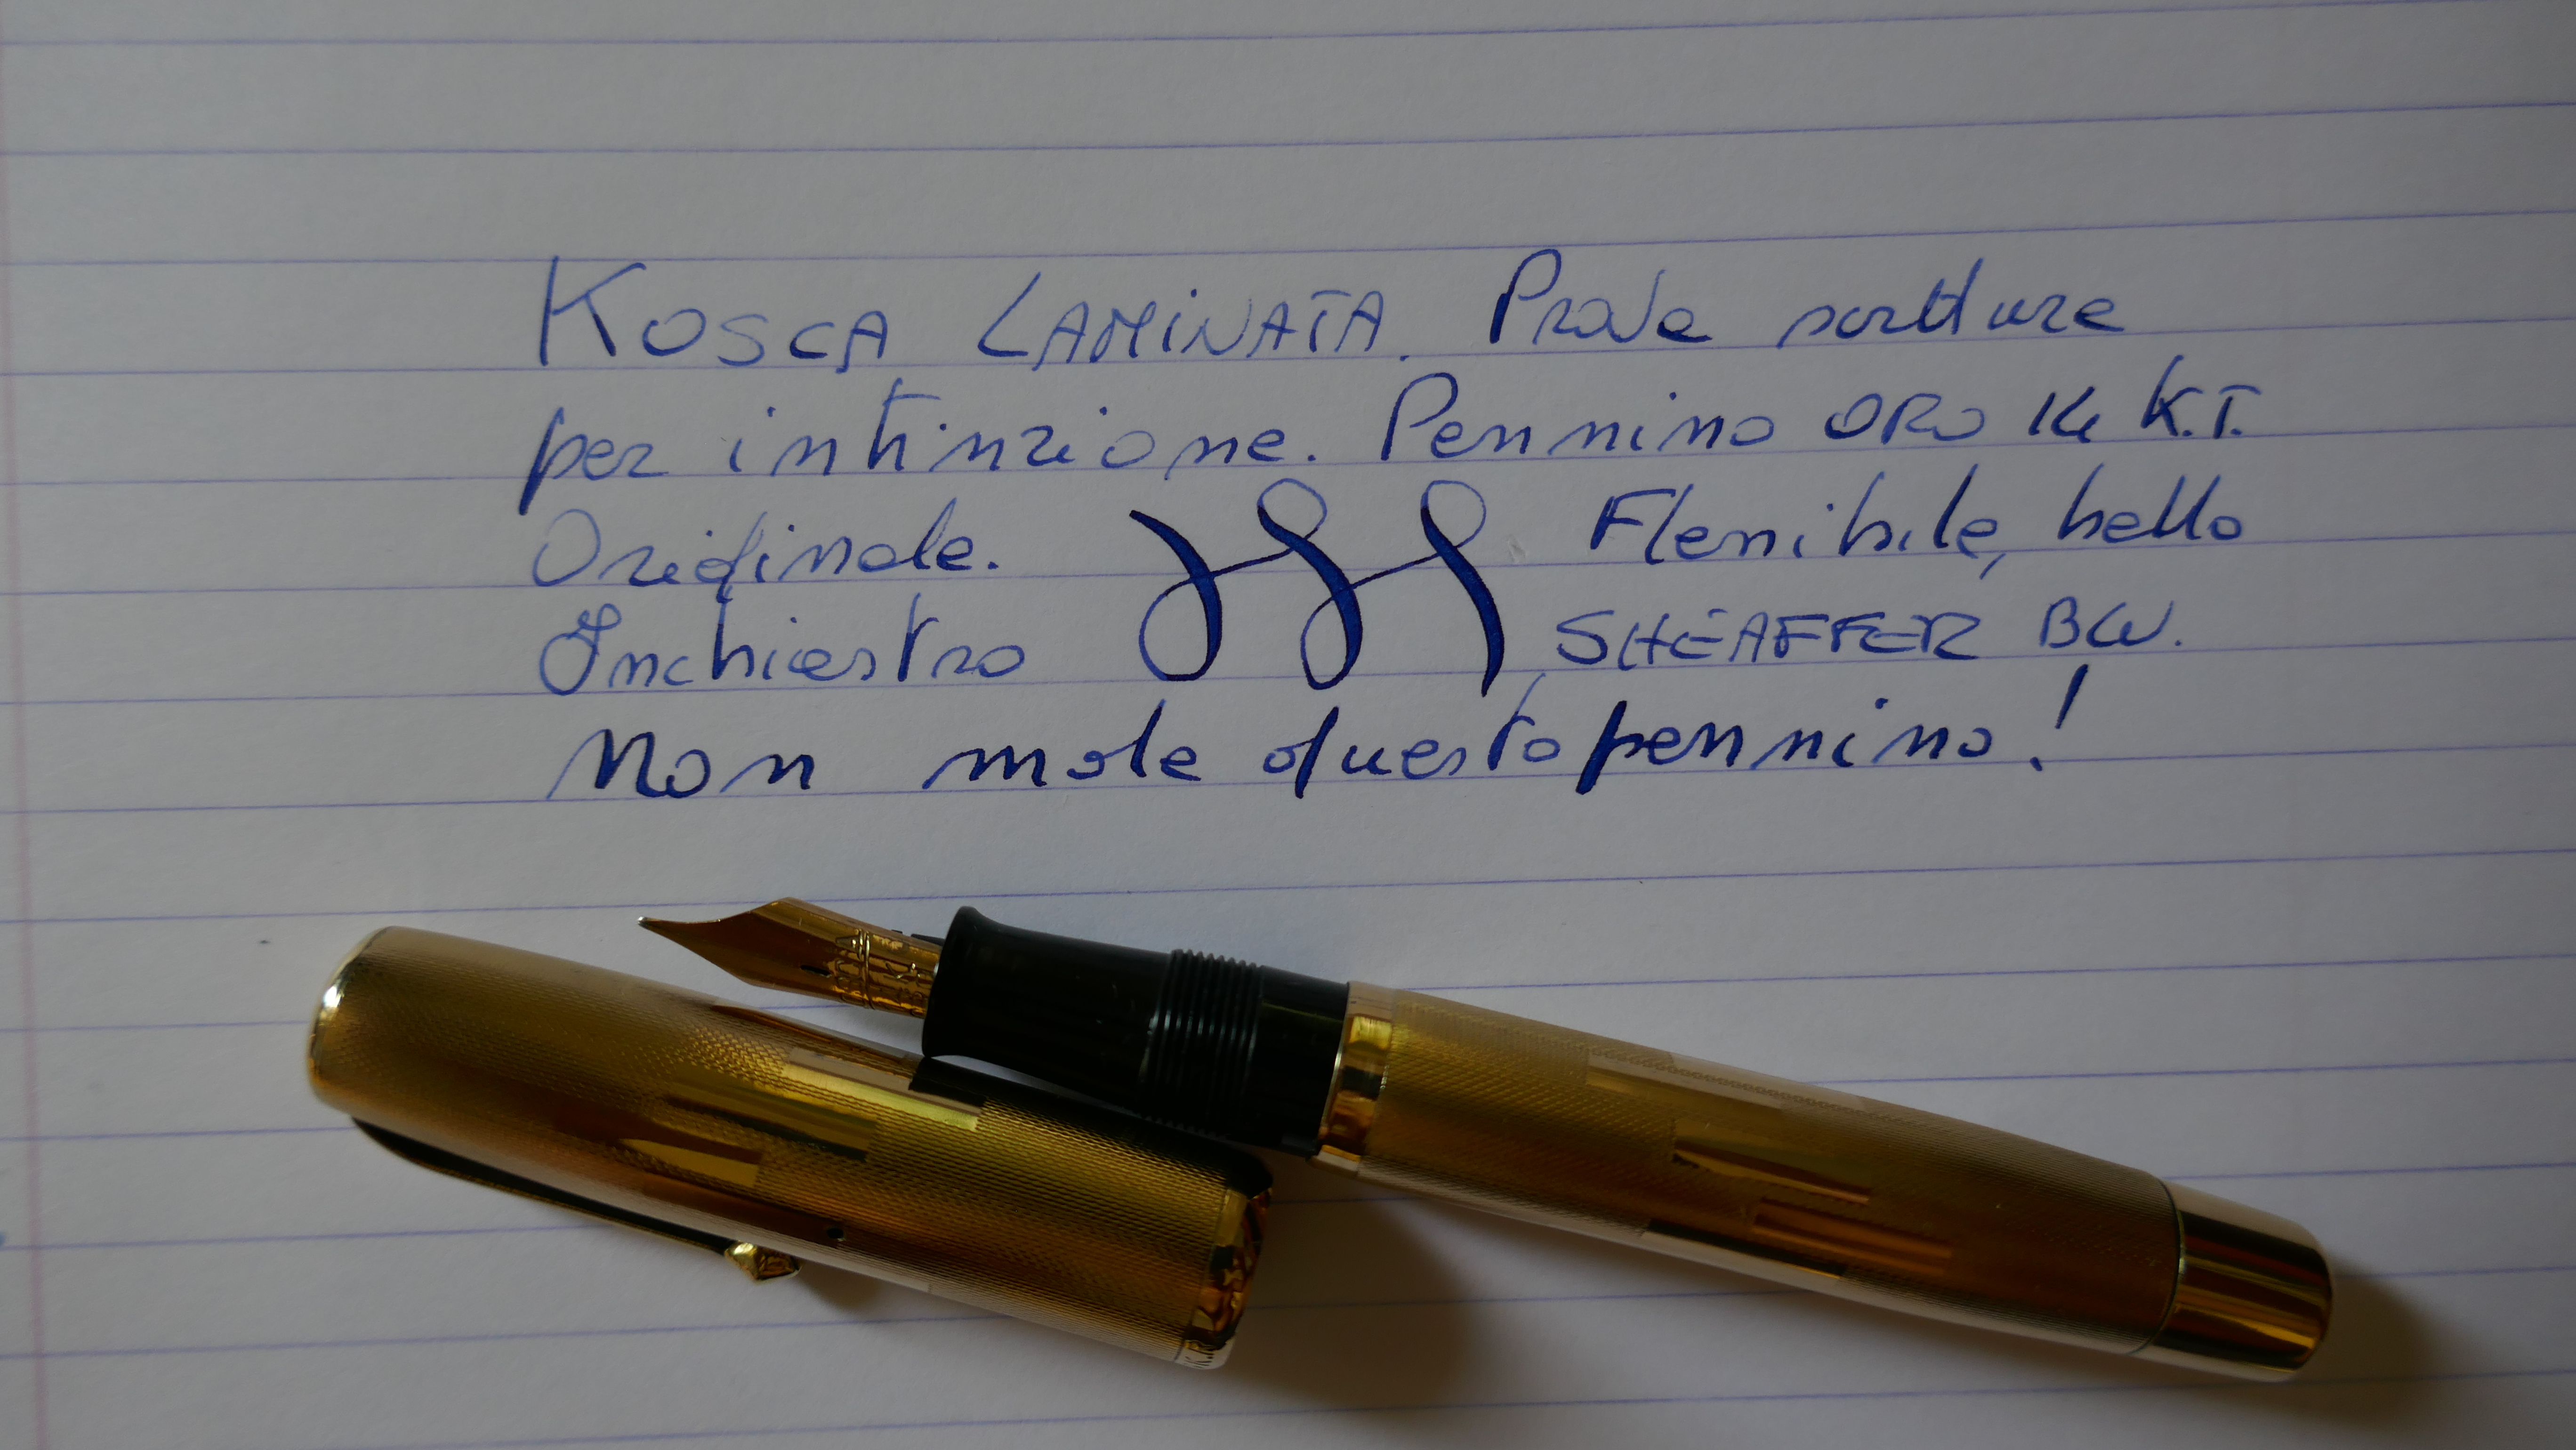 KOSCA LAMINATA. Prova scritture
per intinzione. Pennino ORO 14 K.T.
Originale. Flessibile, bello
Inchiostro SHEAFFER BW.
Non male questo pennino!
K.R